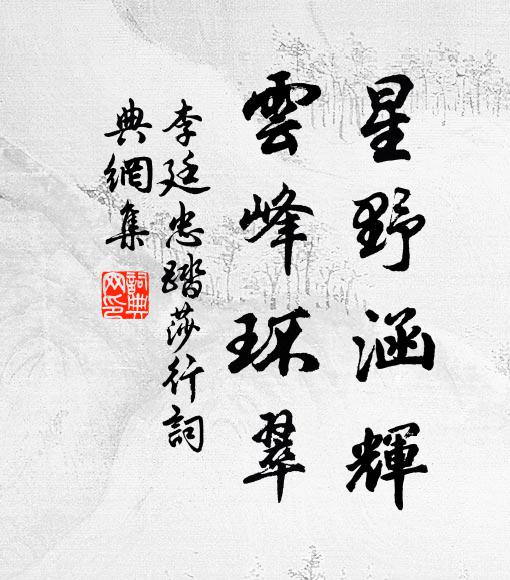 星野涵輝
雲峰环翠
李廷忠踏莎行詞
典網集
詞典
网印